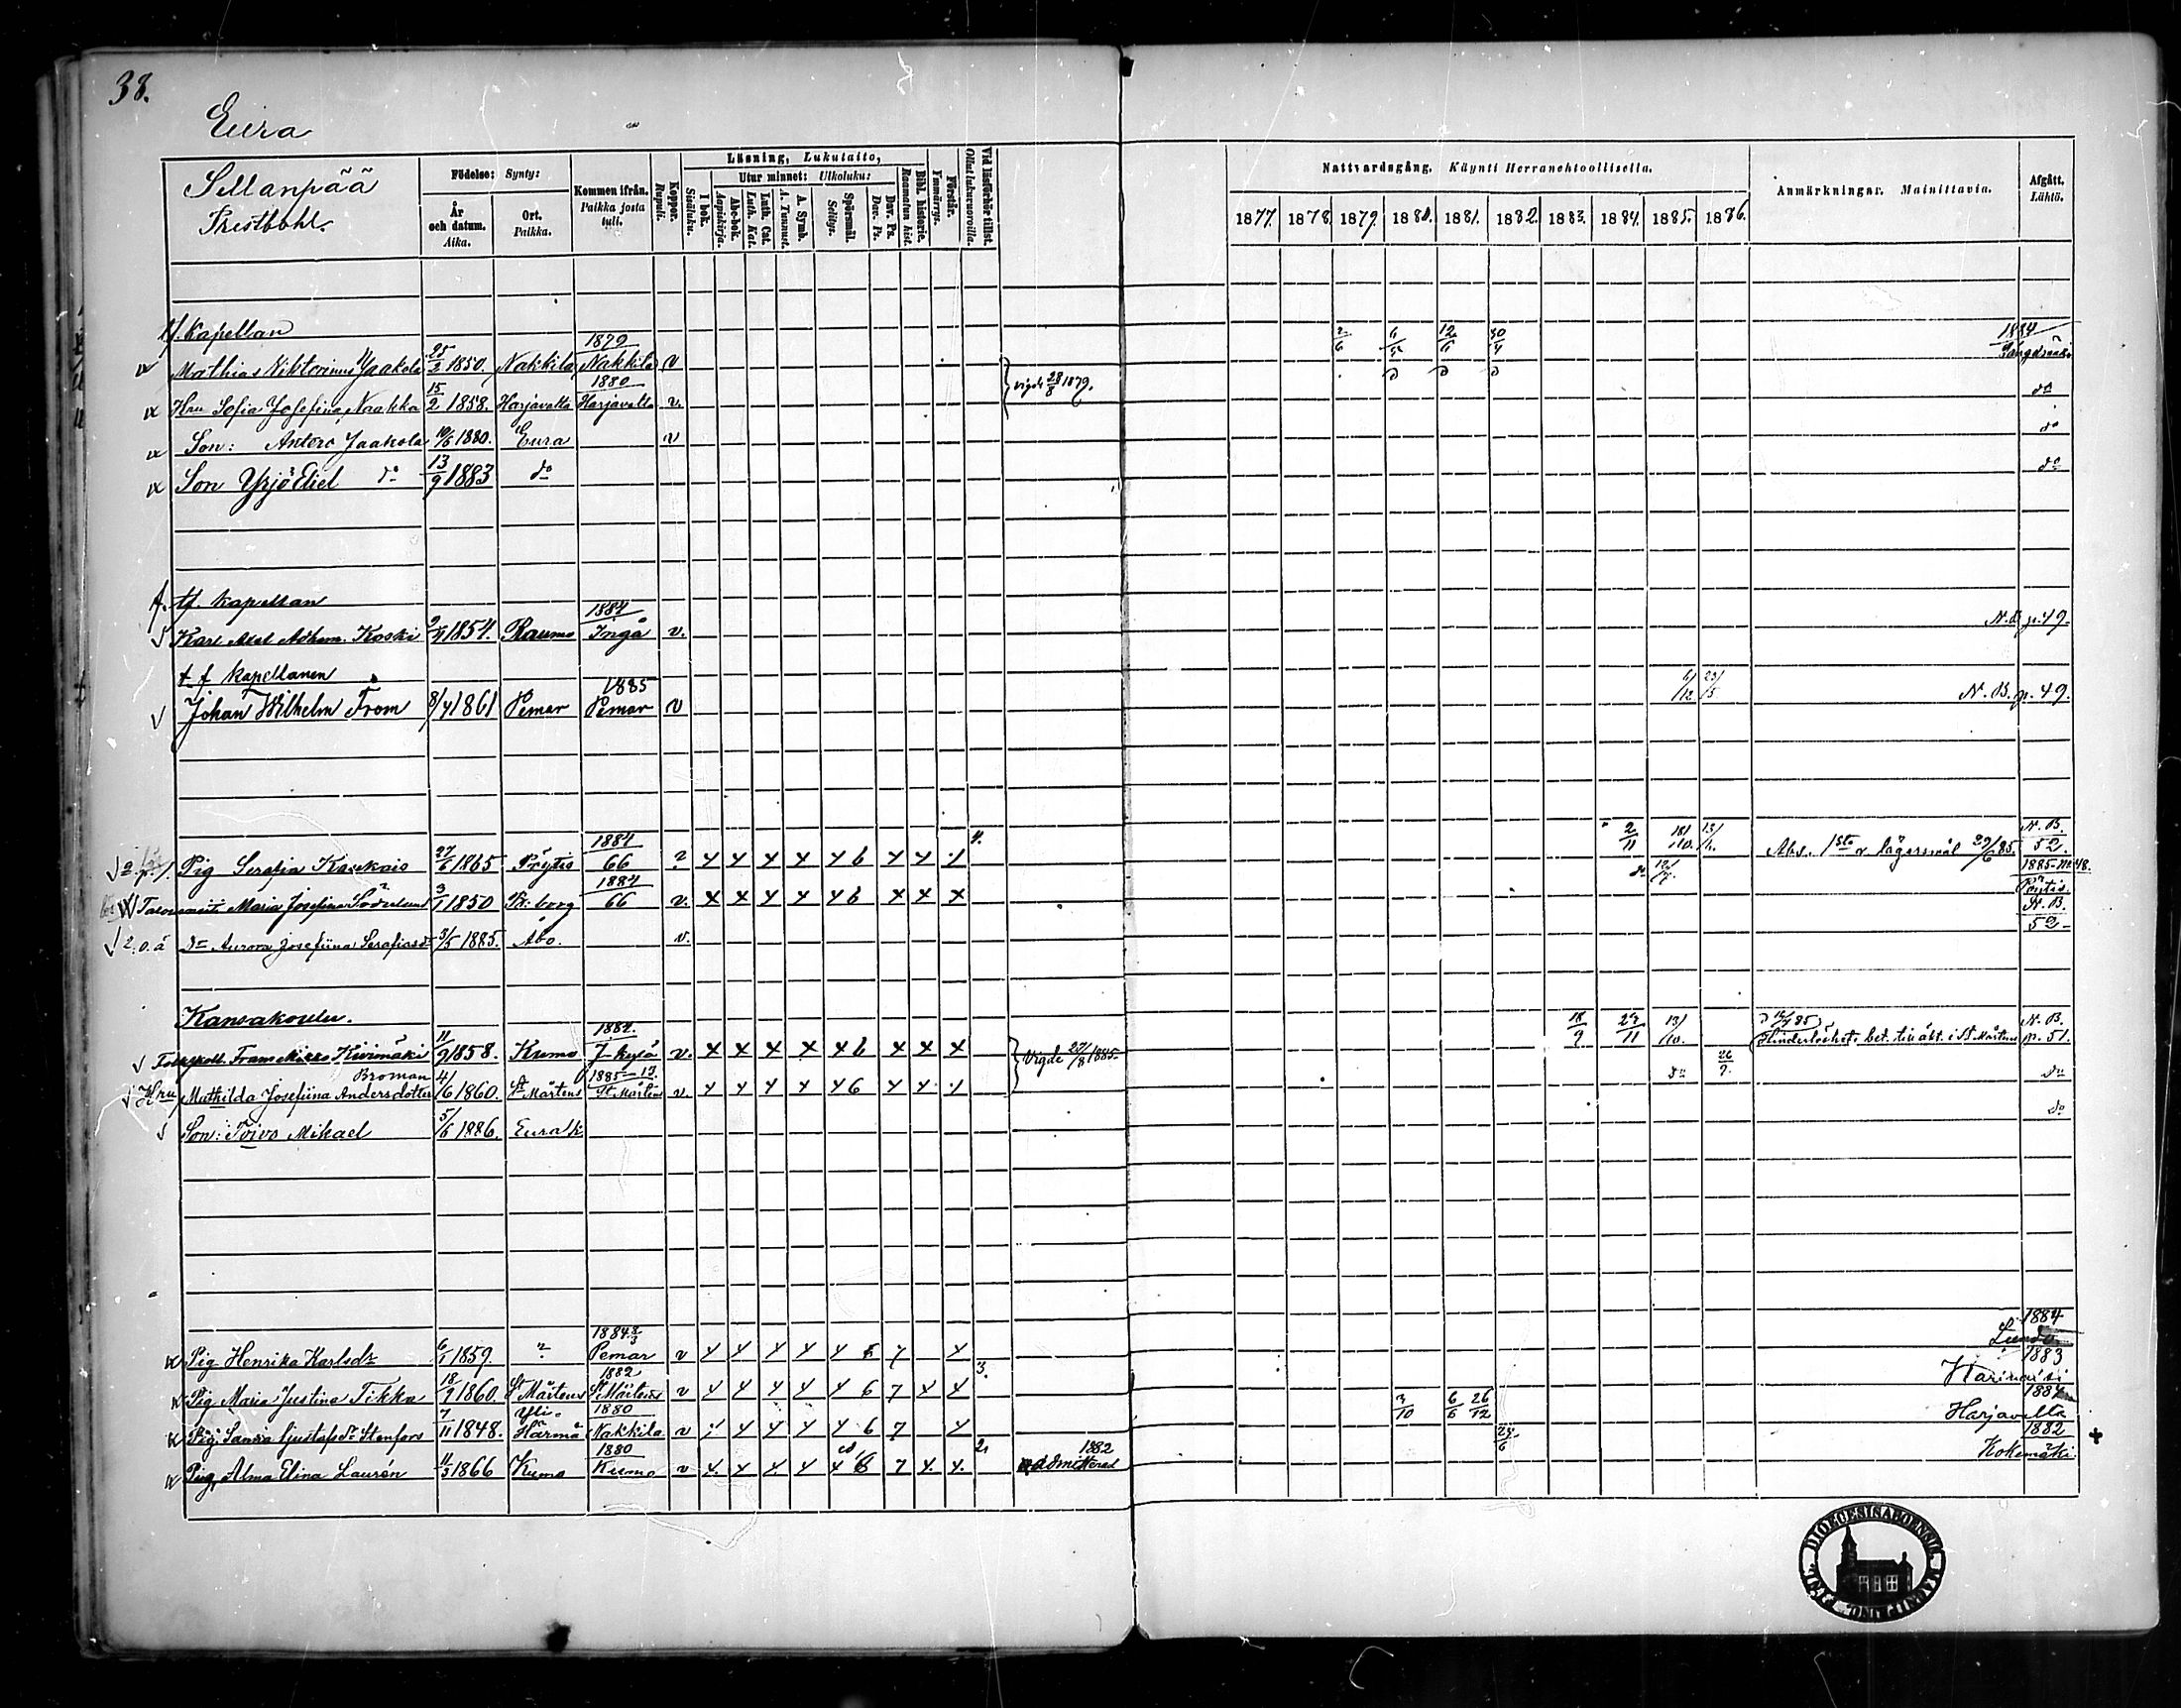 38.
Eura
Sillanpää
Prestbohl.
Födelse: Synty:
År och datum. Aika.
Ort. Paikka.
Kommen ifrån. Paikka josta tuli.
Koppor. Rupuli.
Läsning, Lukutaito,
I bok. Sisäluku.
Utur minnet: Ulkoluku:
Abc-bok. Aapiskirja.
Luth. Cat. Luth. Kat.
A. Symb. A. Tunnust.
Spörsmål. Selitys.
Dav. Ps. Dav. Ps.
Bibl. historie. Raamatun hist.
Förstår. Ymmärrys.
Vid läsförhör tillst. Ollut lukuvuoroilla.
Nattvardsgång. Käynti Herranehtoollisella.
1877. 1878. 1879. 1880. 1881. 1882. 1883. 1884. 1885. 1886.
Anmärkningar. Mainittavia.
Afgått. Lähtö.
tf. Kapellan 1879 1884
Mathias Viktorinus Jaakola 25/2 1850. Nakkila Nakkila v
Hru Sofia Josefina Naakka 15/2 1858. Harjavalta 1880 Harjavalta v. vigde 28/8 1879. do
Son: Antero Jaakola 10/6 1880. Eura v do
Son Yrjö Eliel do 13/9 1883 do do
f. tf. kapellan 1884
Karl Axel Adham. Koski 1854. Raumo Ingå v. N.B. p. 49.
t f kapellanen 1885
Johan Wilhelm From 8/4 1861 Pemar Pemar v 6/12 23/5 N. B. p. 49.
Pig Serafia 27/6 1865 Pöytis 1884 66 ? x x x x x 6 x x x 4. 2/11 18/10. Abs. 1sta lägersmål 29/6 85. N. B. 52.
Maria Josefina Söderlund 3/1 1850 B:borg 1884 66 v. x x x x x 6 x x x 1885 No 48. Pöytis
Dr Aurora Josefiina Serafiasdr 3/5 1885. Åbo. v. N. B. 52
Kansakoulu.
Frans Mikko Kivimäki 11/9 1858. Kumo 1884. v. x x x x x 6 x x x Vigde 27/8 1885. 18/9 23/11 13/10. Hinderlöshets bet. till äkt. i St Mårtens N. B. p. 51.
Hru Mathilda Josefiina Andersdotter Broman 4/6 1860. St Mårtens 1885 St Mårtens v. x x x x x 6 x x x do 26/9. do
Son: Toivo Mikael 5/6 1886. Eura k. do
Pig Henrika Karlsdr 6/1 1859. 1884 Pemar v x x x x x 5 7 x 1884
Pig Maria Justina Tikka 18/9 1860. St Mårtens 1882 St Mårtens v x x x x x 6 7 x x 3. 1883
Pig. Sanna Gustafsdr Stenfors 7/11 1848. Yli-Härmä 1880 Nakkila v x x x x x 6 7 x 3/10 6/6 26/12 1884 Harjavalta
Pig, Alma Elina Laurén 11/3 1866 Kumo 1880 Kumo v x x x x x 6 7 x x 2 1882 admitterad 25/6 1882 Kokemäki
DIOECESIS ABOENSIS